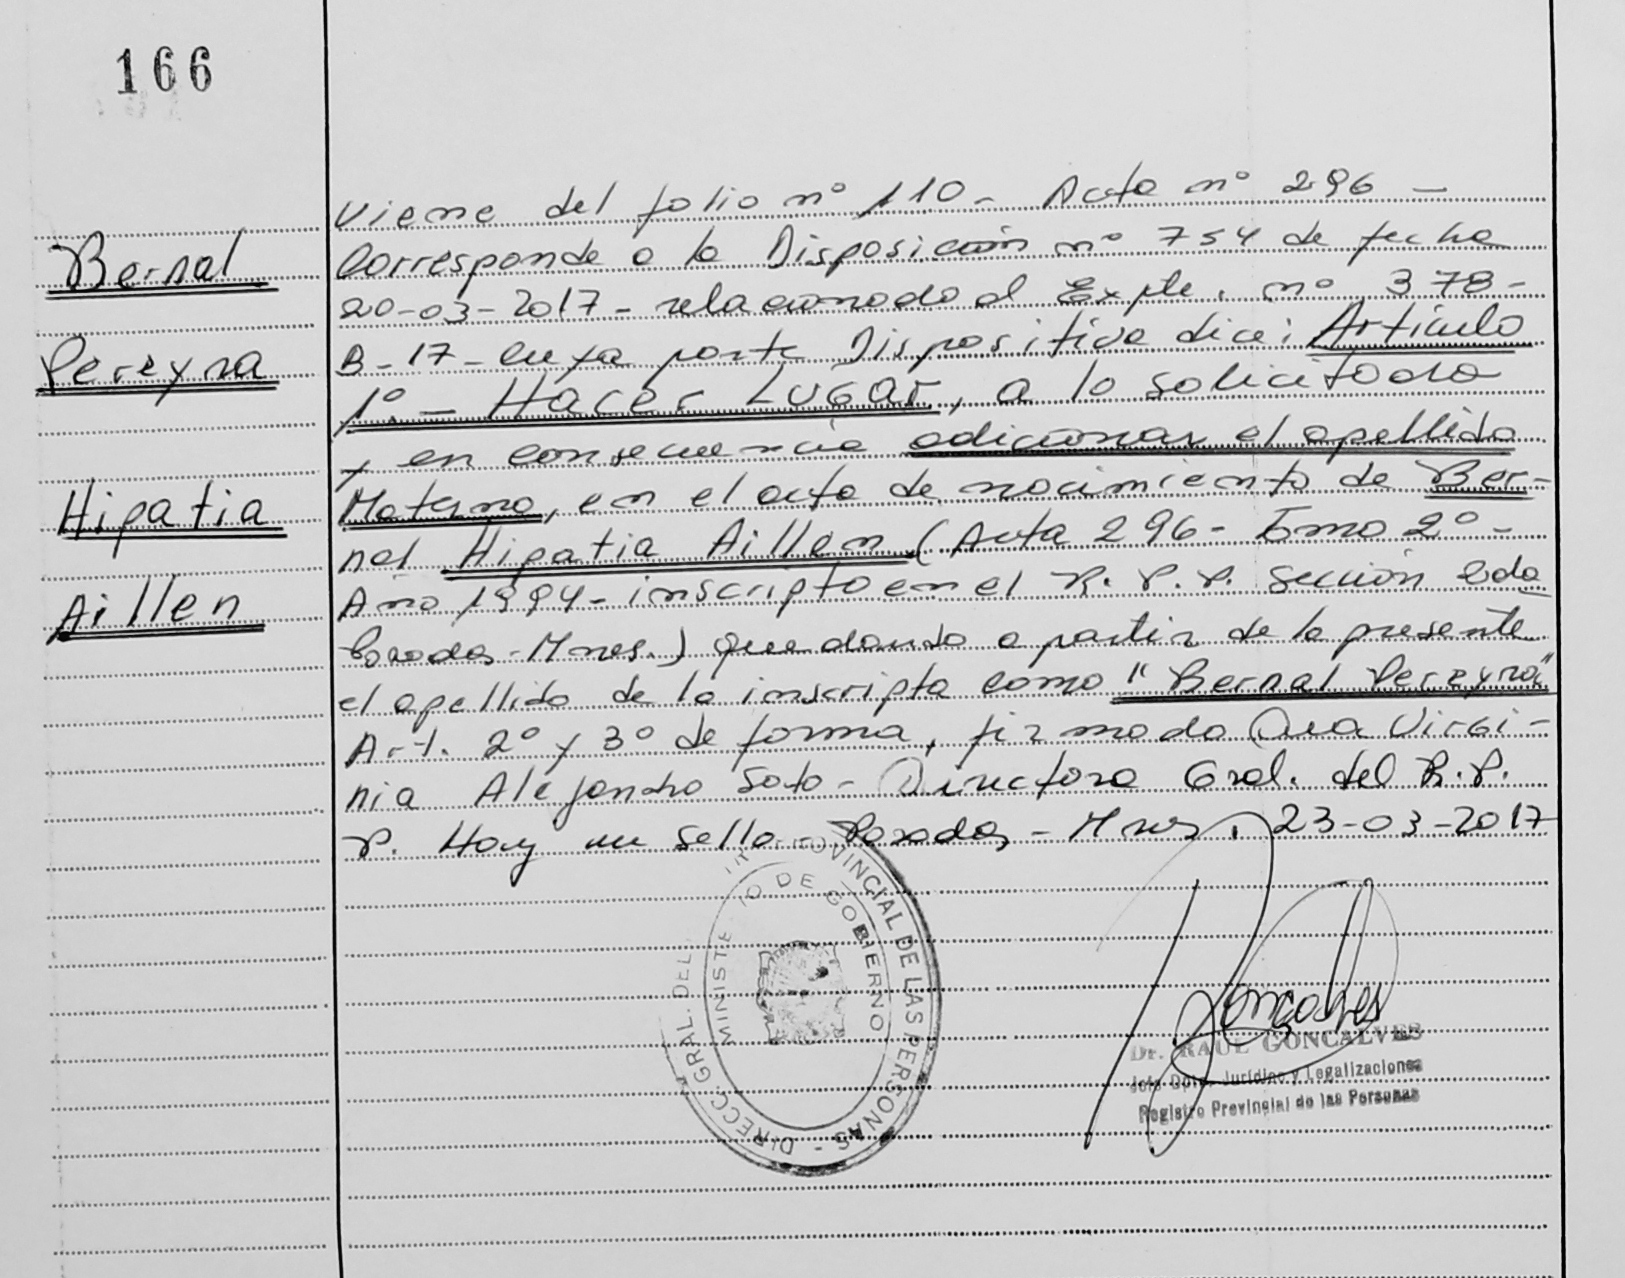 166
Bernal
Pereyra
Hipatia
Aillen
Viene del folio nº 110 - Acta nº 296 -
Corresponde a la Disposición nº 754 de fecha
20-03-2017 - relacionado al Expte. nº 378-
B-17 - cuya parte Dispositiva dice: Artículo
1º. - Hacer Lugar, a lo solicitado
y en consecuencia adicionar el apellido
Materno, en el acta de nacimiento de Ber-
nal Hipatia Aillen (Acta 296 - Tomo 2º -
Año 1994 - inscripta en el R. P. P. Sección 2da
Posadas - Mnes.) quedando a partir de la presente
el apellido de la inscripta como "Bernal Pereyra"
Art. 2º y 3º de forma, firmado Dra Virgi-
nia Alejandra Soto - Directora Gral. del R.P.
P. Hay un sello - Posadas - Mnes, 23-03-2017
DIRECC. GRAL. DEL PROVINCIAL DE LAS PERSONAS -
MINISTE IO DE GOBIERNO
Goncalves
Dr. RAUL GONCALVES
Jefe Dpto. Jurídico y Legalizaciones
Registro Provincial de las Personas